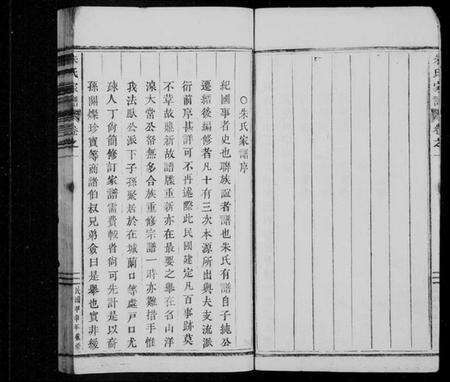 朱氏家譜 卷之一
○朱氏家譜序
紀國事者史也聯族誼者譜也朱氏有譜自子振公
遷紹後編修者凡十有三次本源所出與夫支流派
衍前序甚詳可不再述際此民國建定凡百事跡莫
不革故應新故譜牒重新亦在最要之舉在名山洋
湖大常公徬無多合族重修宗譜一時亦難措手惟
我法臥公派下子孫聚居於在城蘭口等處戶口尤
珠人丁尙簡修訂家譜需費較省尙可先計是以裔
孫開燦珍寶等商諸伯叔兄弟僉曰是舉也實非緩
朱氏家譜 卷之一